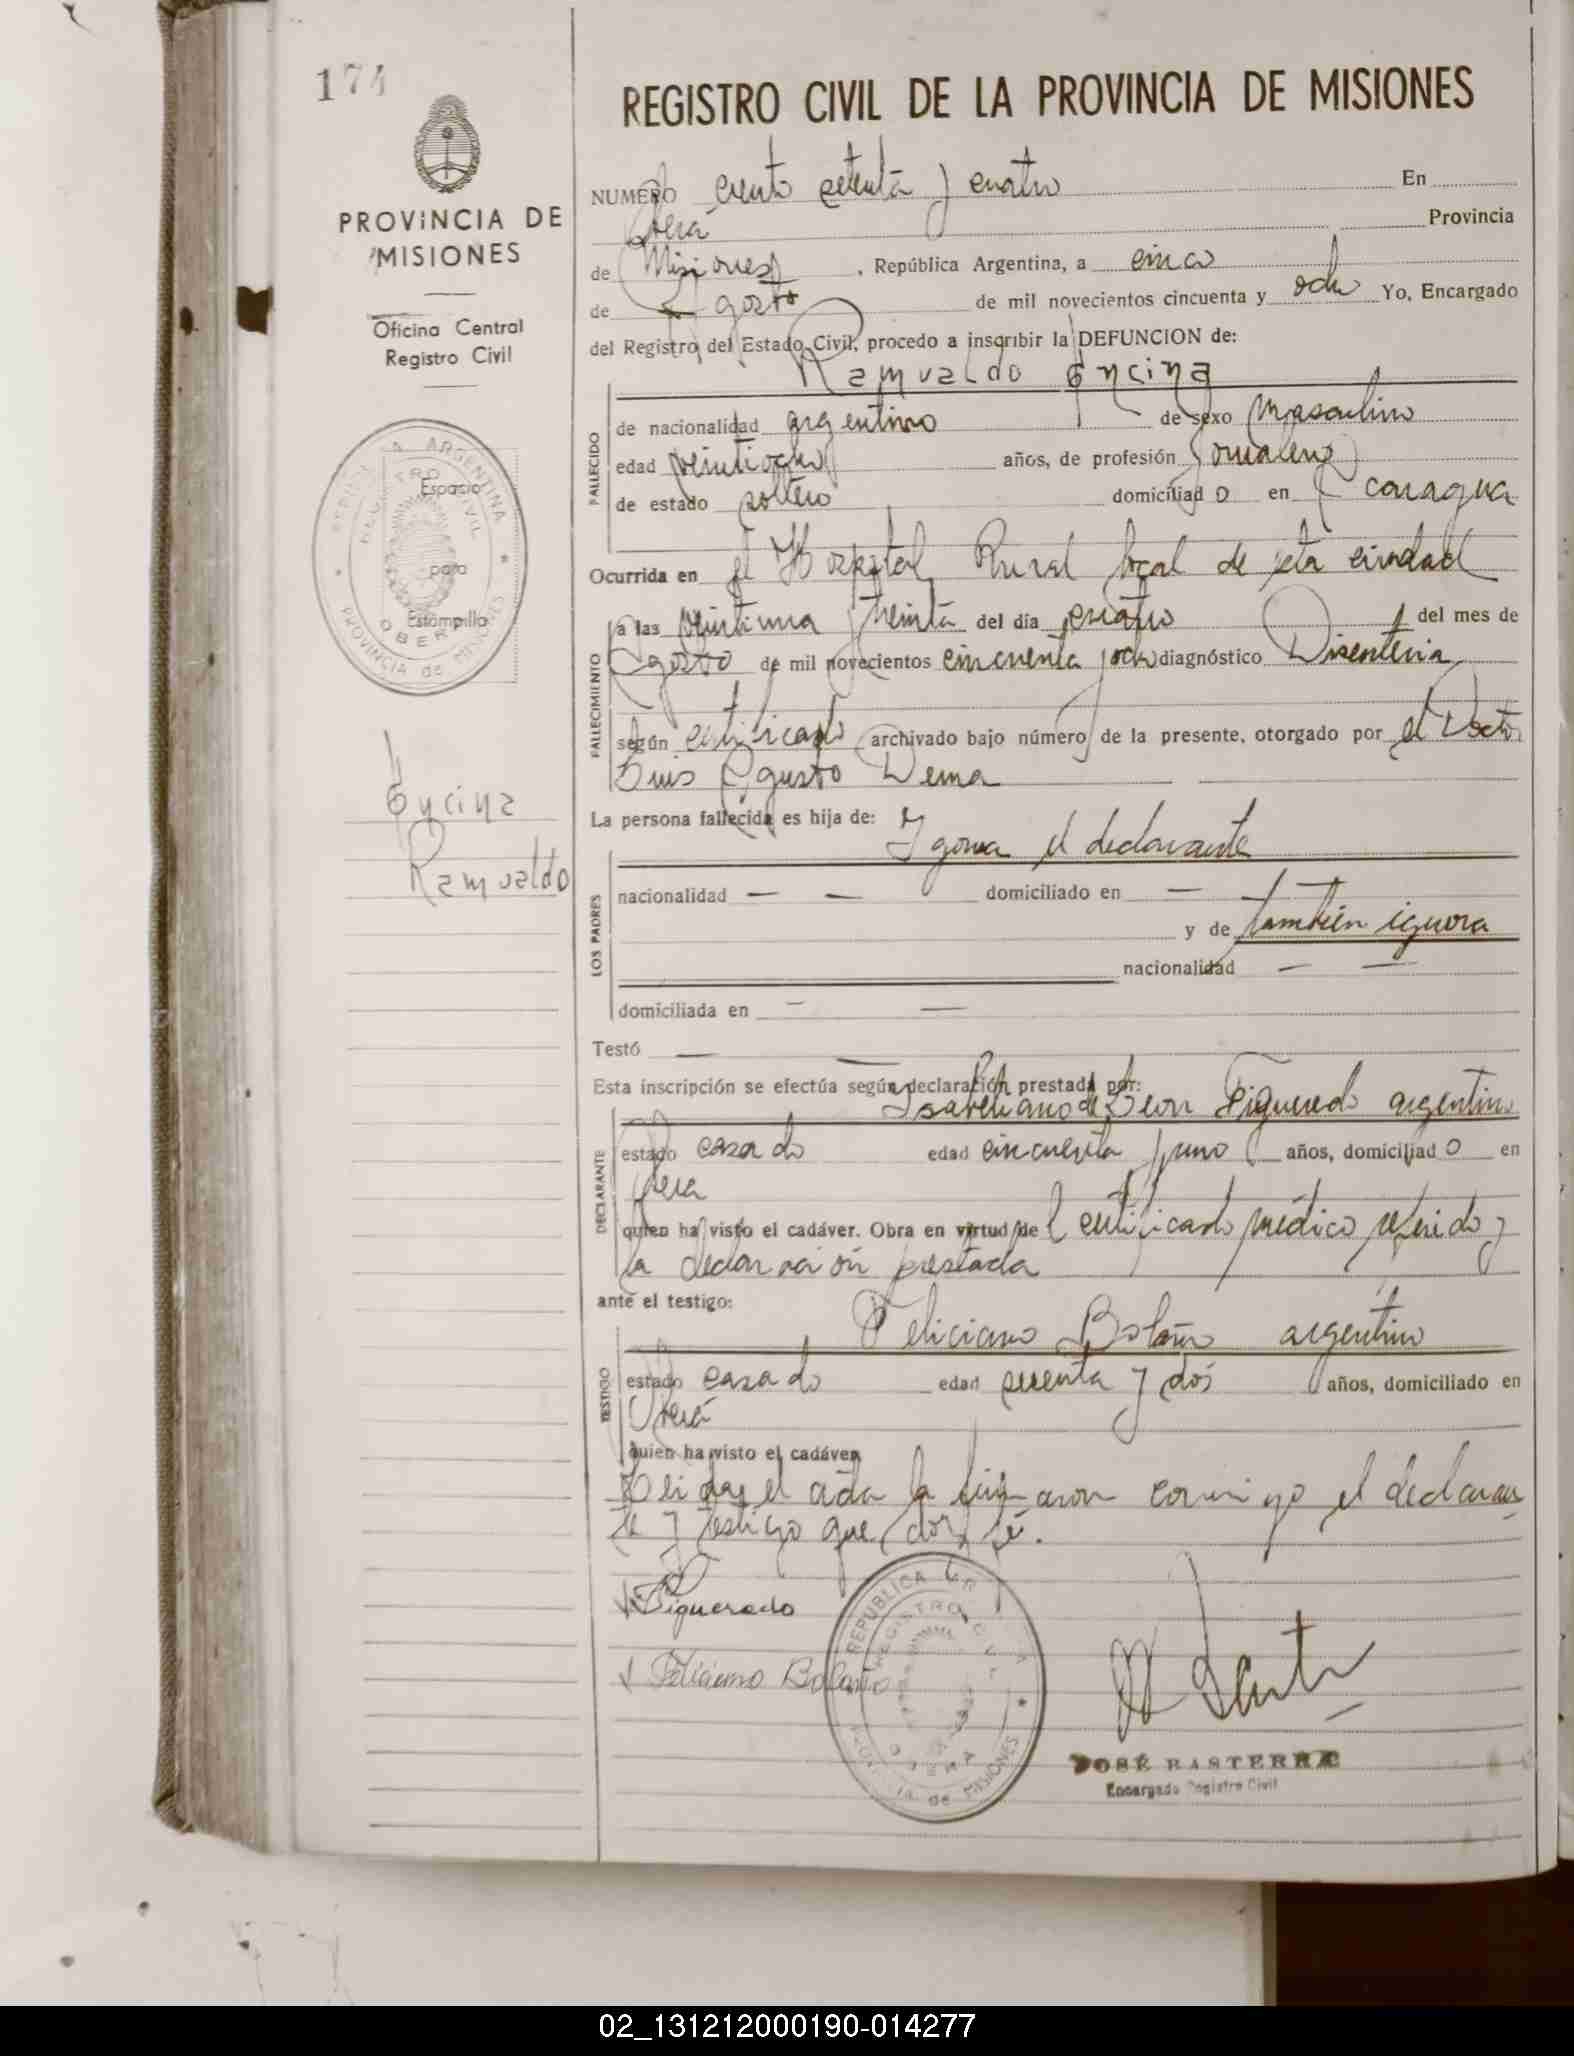 174
PROVINCIA DE
MISIONES
Oficina Central
Registro Civil
REPUBLICA ARGENTINA
REGISTRO CIVIL
Espacio
para
Estampilla
OBERA
PROVINCIA de MISIONES
Encina
Ramualdo
REGISTRO CIVIL DE LA PROVINCIA DE MISIONES
NUMERO ciento setenta y cuatro En
Oberá Provincia
de Misiones, República Argentina, a cinco
de Agosto de mil novecientos cincuenta y ocho Yo, Encargado
del Registro del Estado Civil, procedo a inscribir la DEFUNCION de:
Ramualdo Encina
FALLECIDO
de nacionalidad argentino de sexo masculino
edad veintiocho años, de profesión Jornalero
de estado soltero domiciliado en Caraguа
Ocurrida en el Hospital Rural local de esta ciudad
FALLECIMIENTO
a las veintiuna treinta del día cuatro del mes de
Agosto de mil novecientos cincuenta y ocho diagnóstico Disenteria
según certificado archivado bajo número de la presente, otorgado por el Doctor
Luis Agusto Dema
La persona fallecida es hija de: Ignora el declarante
LOS PADRES
nacionalidad — — domiciliado en —
y de también ignora
nacionalidad — —
domiciliada en — —
Testó — —
Esta inscripción se efectúa según declaración prestada por:
de Leon Figueredo argentino
DECLARANTE
estado casado edad cincuenta y uno años, domiciliado en
Obera
quien ha visto el cadáver. Obra en virtud del certificado médico referido y
la declaración prestada
ante el testigo:
Feliciano Bolaño argentino
TESTIGO
estado casado edad y dos años, domiciliado en
Oberá
quien ha visto el cadáver
Leida el acta la firmaron conmigo el declaran
te y testigo que doy fé.
Figueredo
Feliciano Bolaño
REPUBLICA ARGENTINA
REGISTRO CIVIL
OBERA
PROVINCIA de MISIONES
JOSÉ BASTERRA
Encargado Registro Civil
02_131212000190-014277